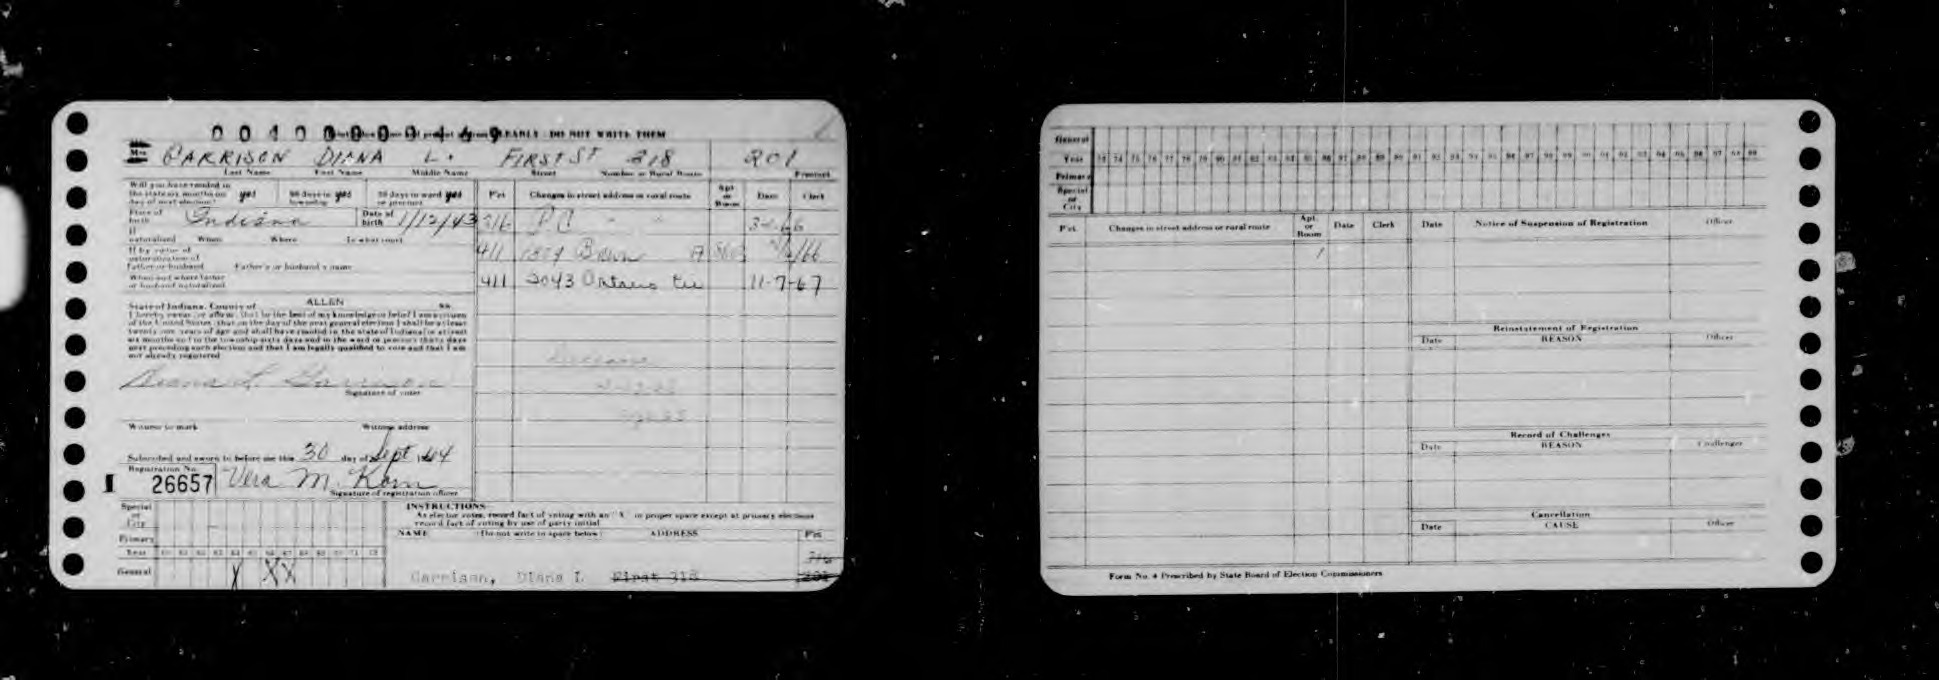 CLEARLY DO NOT WRITE THEM
Mrs GARRISON DIANA L. FIRST ST 318 201
Last Name First Name Middle Name Street Number or Rural Route Precinct
Will you have resided in the state six months on day of next election? yes 60 days in township yes 30 days in ward or precinct yes
Pct Changes in street address or rural route Apt or Room Date Clerk
Place of birth Indiana Date of birth 1/12/43
316 PC " " 3-1-66
If naturalized When Where In what court
If by virtue of naturalization of Father or husband Father's or husband's name
411
/66
When and where father or husband naturalized
411 2043 Ontario 11-7-67
State of Indiana, County of ALLEN ss
I hereby swear (or affirm) that to the best of my knowledge or belief I am a citizen
of the United States; that on the day of the next general election I shall be at least
twenty one years of age and shall have resided in the state of Indiana for at least
six months and in the township sixty days and in the ward or precinct thirty days
next preceding such election and that I am legally qualified to vote and that I am
not already registered
Diana L. Garrison
Signature of voter
Witness to mark Witness address
Subscribed and sworn to before me this 30 day of Sept 1964
Registration No.
I 26657 Vera M. Korn
Signature of registration officer
Special or City
Primary
Year
General X X X
INSTRUCTIONS
As elector votes, record fact of voting with an "X" in proper space except at primary elections
record fact of voting by use of party initial
NAME (Do not write in space below) ADDRESS Pct
316
Garrison, Diana L First 318 201
General
Year 73 74 75 76 77 78 79 80 81 82 83 84 85 86 87 88 89 90 91 92 93 94
Primary
Special or City
Pct. Changes in street address or rural route Apt. or Room Date Clerk
Date Notice of Suspension of Registration Officer
Reinstatement of Registration
Date REASON Officer
Record of Challenges
Date REASON Challenger
Cancellation
Date CAUSE Officer
Form No. 4 Prescribed by State Board of Election Commissioners